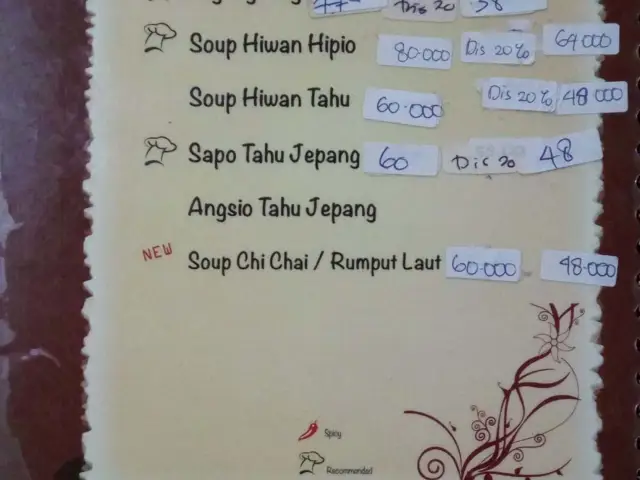 Dis 20 38
Soup Hiwan Hipio 80.000 Dis 20% 64 000
Soup Hiwan Tahu 60.000 Dis 20% 48 000
Sapo Tahu Jepang 60 Dis 20 48
Angsio Tahu Jepang
NEW Soup Chi Chai / Rumput Laut 60.000 48.000
Spicy
Recommended